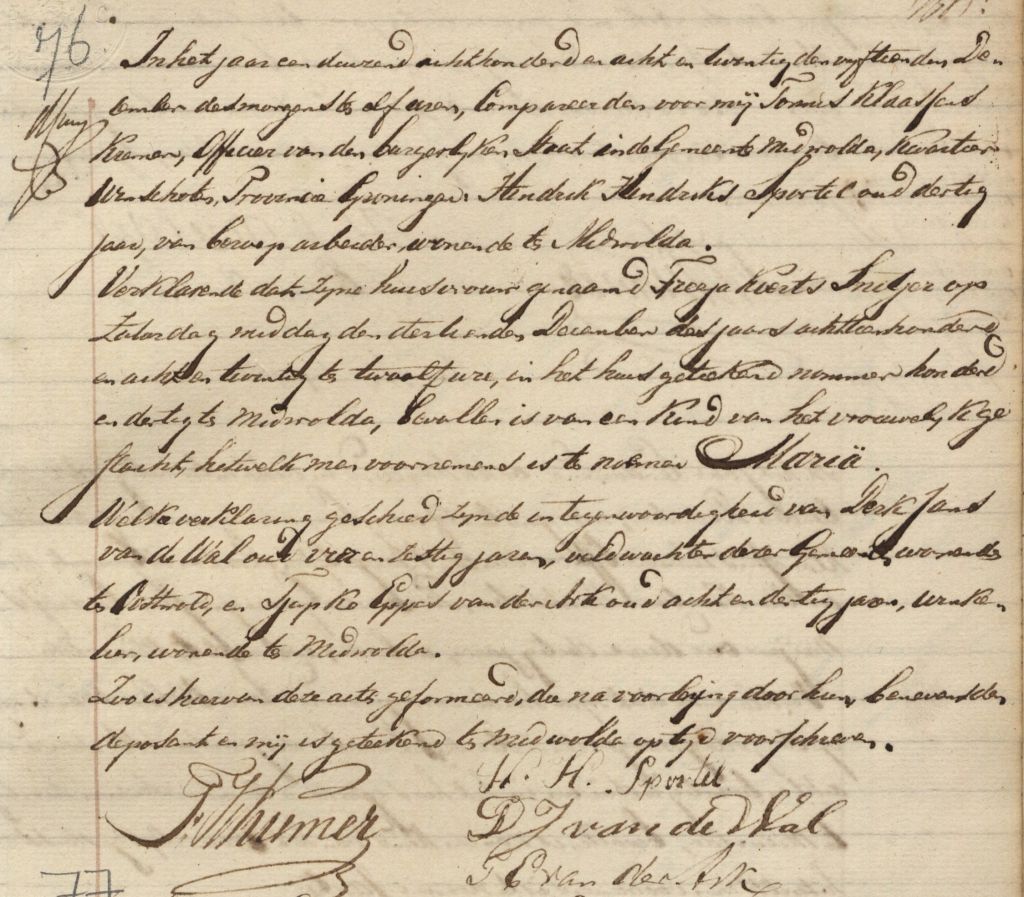 76.
In het jaar een duizend achthonderd en acht en twintig den vyftienden De-
cember des morgens te elf uren, Compareerden voor mij Tonnis Klaassens
Kremer, Officier van den burgerlyken Staat in de Gemeente Midwolda, Kwartier
Winschoten, Provincie Groningen: Hendrik Hendriks Sportel oud dertig
jaar, van beroep arbeider, wonende te Midwolda.
Verklarende dat zyne huisvrouw genaamd Freeja Keerts Snitjer op
Zaturdag middag den dertienden December des jaars achttienhonderd
en acht en twintig te twaalf ure, in het huis getekend nommer honderd
en dertig te Midwolda, bevallen is van een Kind van het vrouwelyk ge
slacht, hetwelk men voornemens is te noemen Mariä.
Welke verklaring geschied zynde in tegenwoordigheid van Derk Jans
van de Wal oud vier en zestig jaren, veldwachter dezer Gemeente, wonende
te Oostwold, en Tjapko Eppes van der Ark oud acht en dertig jaren, winke-
lier, wonende te Midwolda.
Zoo is hiervan deze acte geformeerd, die na voorlezing door hun, benevens den
deposant en mij is getekend te Midwolda op tyd voorschreven.
H. H. Sportel
TKkremer
D J van de Wal
T E van der Ark
77